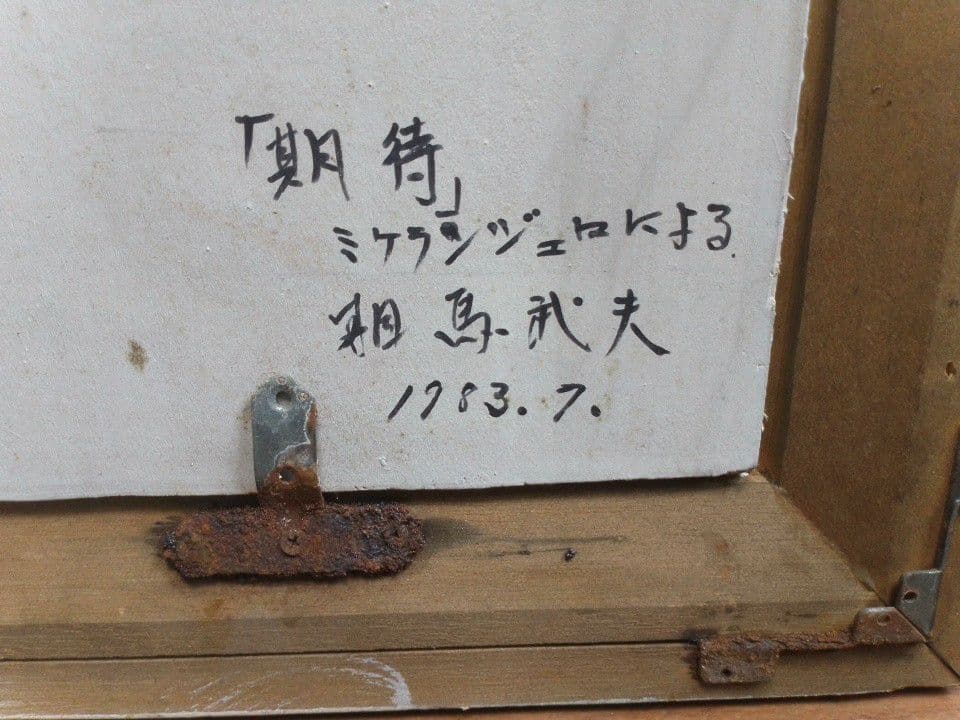 「期待」
ミケランジェロによる
相馬武夫
1983.7.